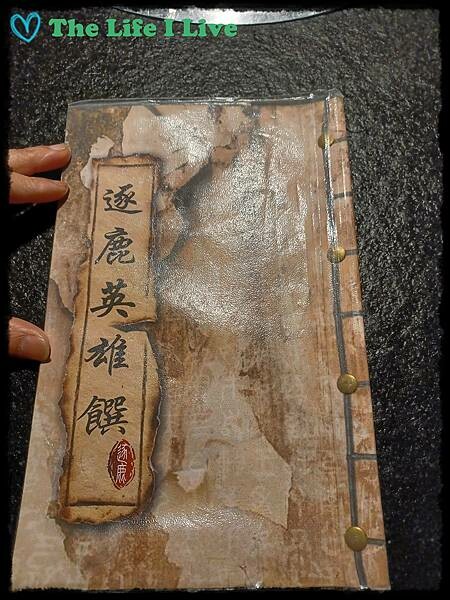 The Life I Live
逐鹿英雄饌
逐鹿